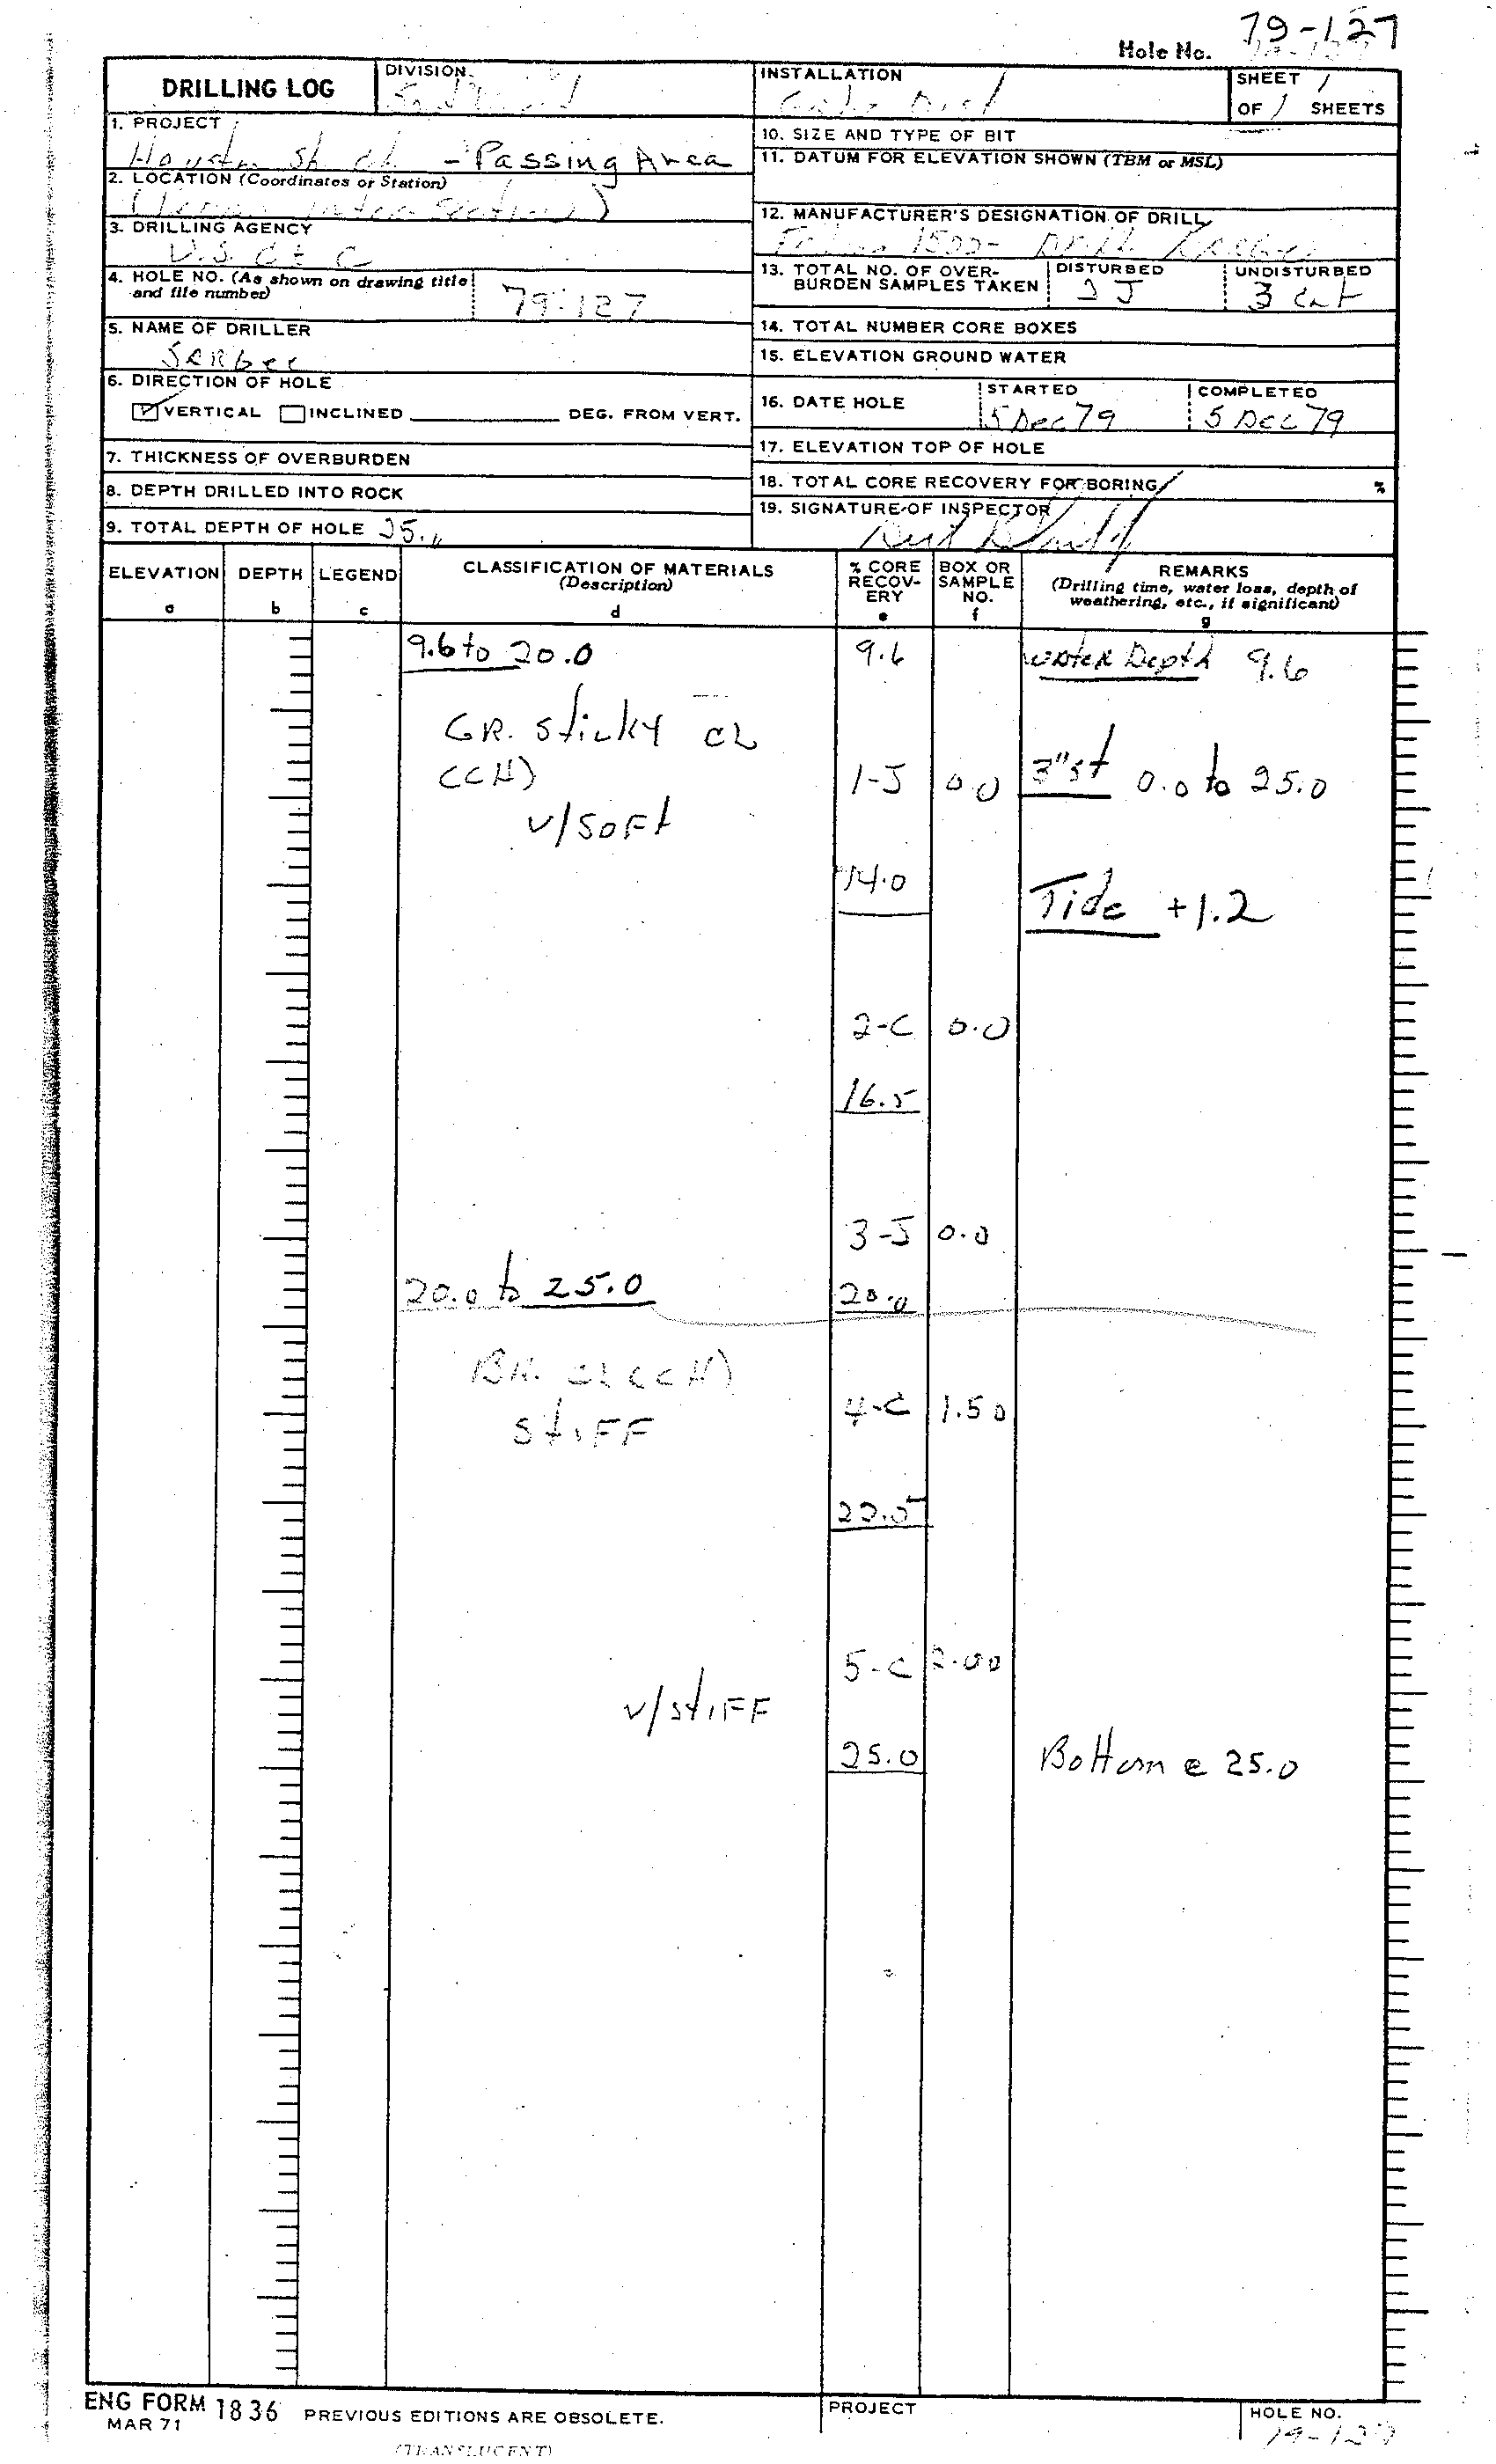 79-127
Hole No.
DRILLING LOG
DIVISION
INSTALLATION
SHEET 1
OF 1 SHEETS
1. PROJECT
Houston Sh Ch - Passing Area
10. SIZE AND TYPE OF BIT
11. DATUM FOR ELEVATION SHOWN (TBM or MSL)
2. LOCATION (Coordinates or Station)
12. MANUFACTURER'S DESIGNATION OF DRILL
3. DRILLING AGENCY
13. TOTAL NO. OF OVER-
BURDEN SAMPLES TAKEN
DISTURBED
2 J
UNDISTURBED
3
4. HOLE NO. (As shown on drawing title
and file number)
79-127
14. TOTAL NUMBER CORE BOXES
5. NAME OF DRILLER
15. ELEVATION GROUND WATER
6. DIRECTION OF HOLE
VERTICAL INCLINED DEG. FROM VERT.
16. DATE HOLE
STARTED
5 Dec 79
COMPLETED
5 Dec 79
17. ELEVATION TOP OF HOLE
7. THICKNESS OF OVERBURDEN
18. TOTAL CORE RECOVERY FOR BORING %
8. DEPTH DRILLED INTO ROCK
19. SIGNATURE OF INSPECTOR
9. TOTAL DEPTH OF HOLE 25.0
ELEVATION
a
DEPTH
b
LEGEND
c
CLASSIFICATION OF MATERIALS
(Description)
d
% CORE
RECOV-
ERY
e
BOX OR
SAMPLE
NO.
f
REMARKS
(Drilling time, water loss, depth of
weathering, etc., if significant)
g
9.6 to 20.0
9.6
Water Depth 9.6
GR. Sticky CL
(CH)
1-J 0.0
3" st 0.0 to 25.0
v/soft
14.0
Tide +1.2
2-C 0.0
16.5
3-J 0.0
20.0 to 25.0
20.0
BR. CL (CH)
4-C 1.50
stiff
22.5
5-C 2.00
v/stiff
25.0
Bottom @ 25.0
ENG FORM 1836
MAR 71
PREVIOUS EDITIONS ARE OBSOLETE.
(TRANSLUCENT)
PROJECT
HOLE NO.
79-127